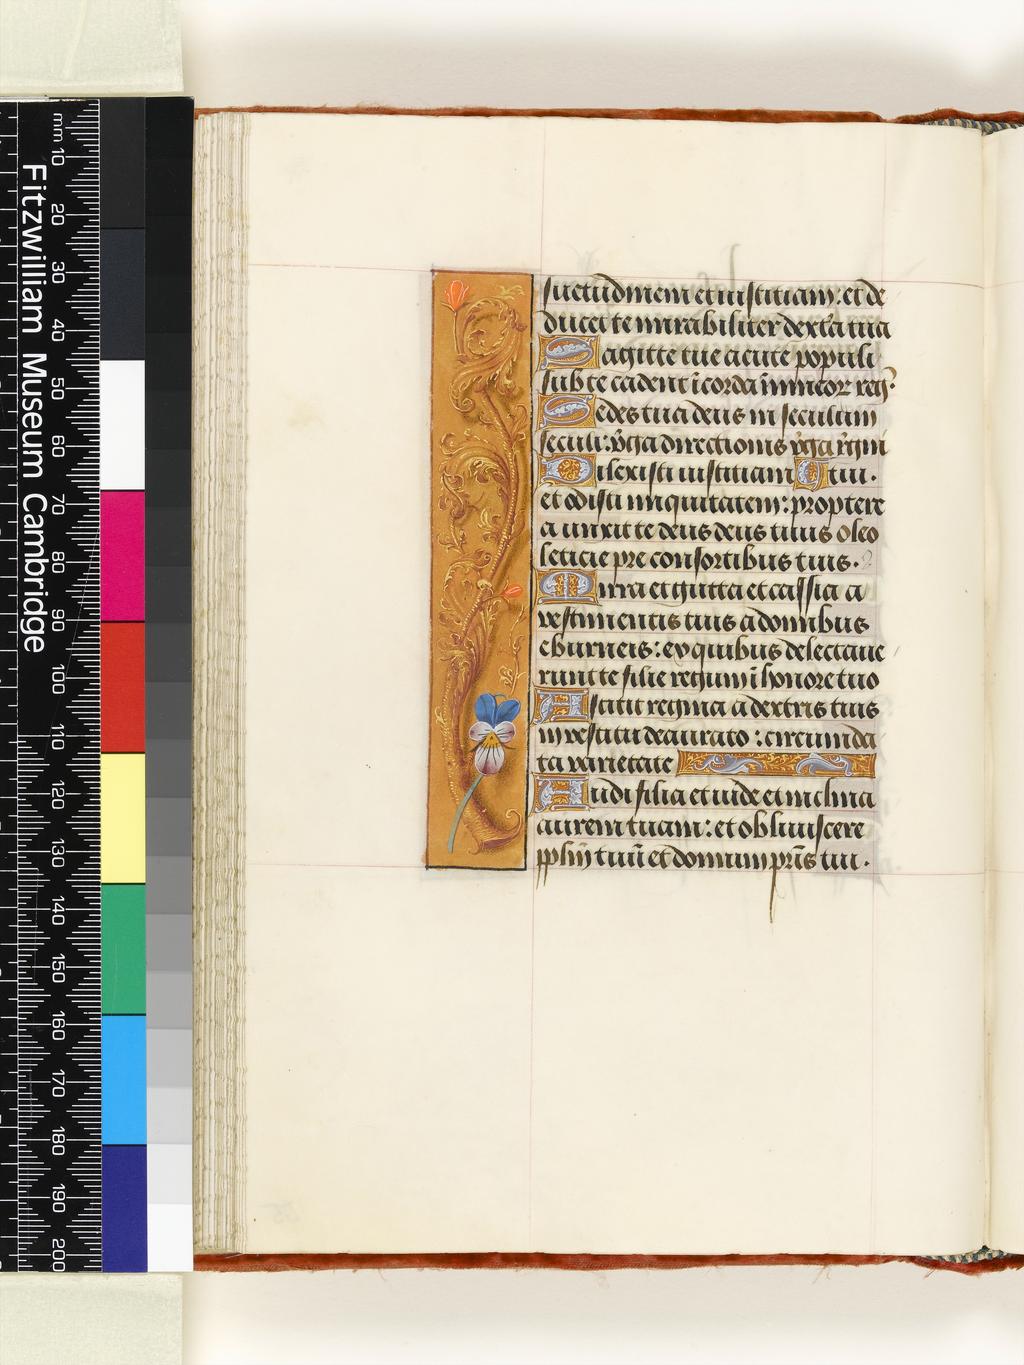 suetudinem et iusticiam: et de
ducet te mirabiliter dextͣa tua
Sagitte tue acute populi
sub te cadent ī corda inimicoꝝ reg̃.
Sedes tua deus in seculum
seculi: v̾ga directionis v̾ga r̃gni
Dilexisti iusticiam tui.
et odisti iniquitatem: proptere
a unxit te deus deus tuus oleo
leticie pre consortibus tuis.
Mirra et gutta et cassia a
vestimentis tuis a domibus
eburneis: ex quibus delectaue
runt te filie regum ī honore tuo
Astitit regina a dextris tuis
in vestitu deaurato: circumda
ta varietate
Audi filia et vide et inclina
aurem tuam: et obliuiscere
pplm̄ tuū et domum pr̃is tui.
Fitzwilliam Museum Cambridge
mm 10 20 30 40 50 60 70 80 90 100 110 120 130 140 150 160 170 180 190 200